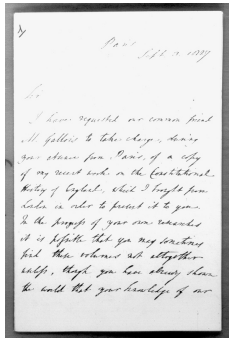 Paris
Sept. 2 1827
Sir
I have requested our common friend
M. Gallois to take charge, during
your absence from Paris, of a copy
of my recent work on the Constitutional
History of England, which I brought from
London in order to present it to you.
In the progress of your own researches
it is possible that you may sometimes
find these volumes not altogether
useless, though you have already shown
the world that your knowledge of our